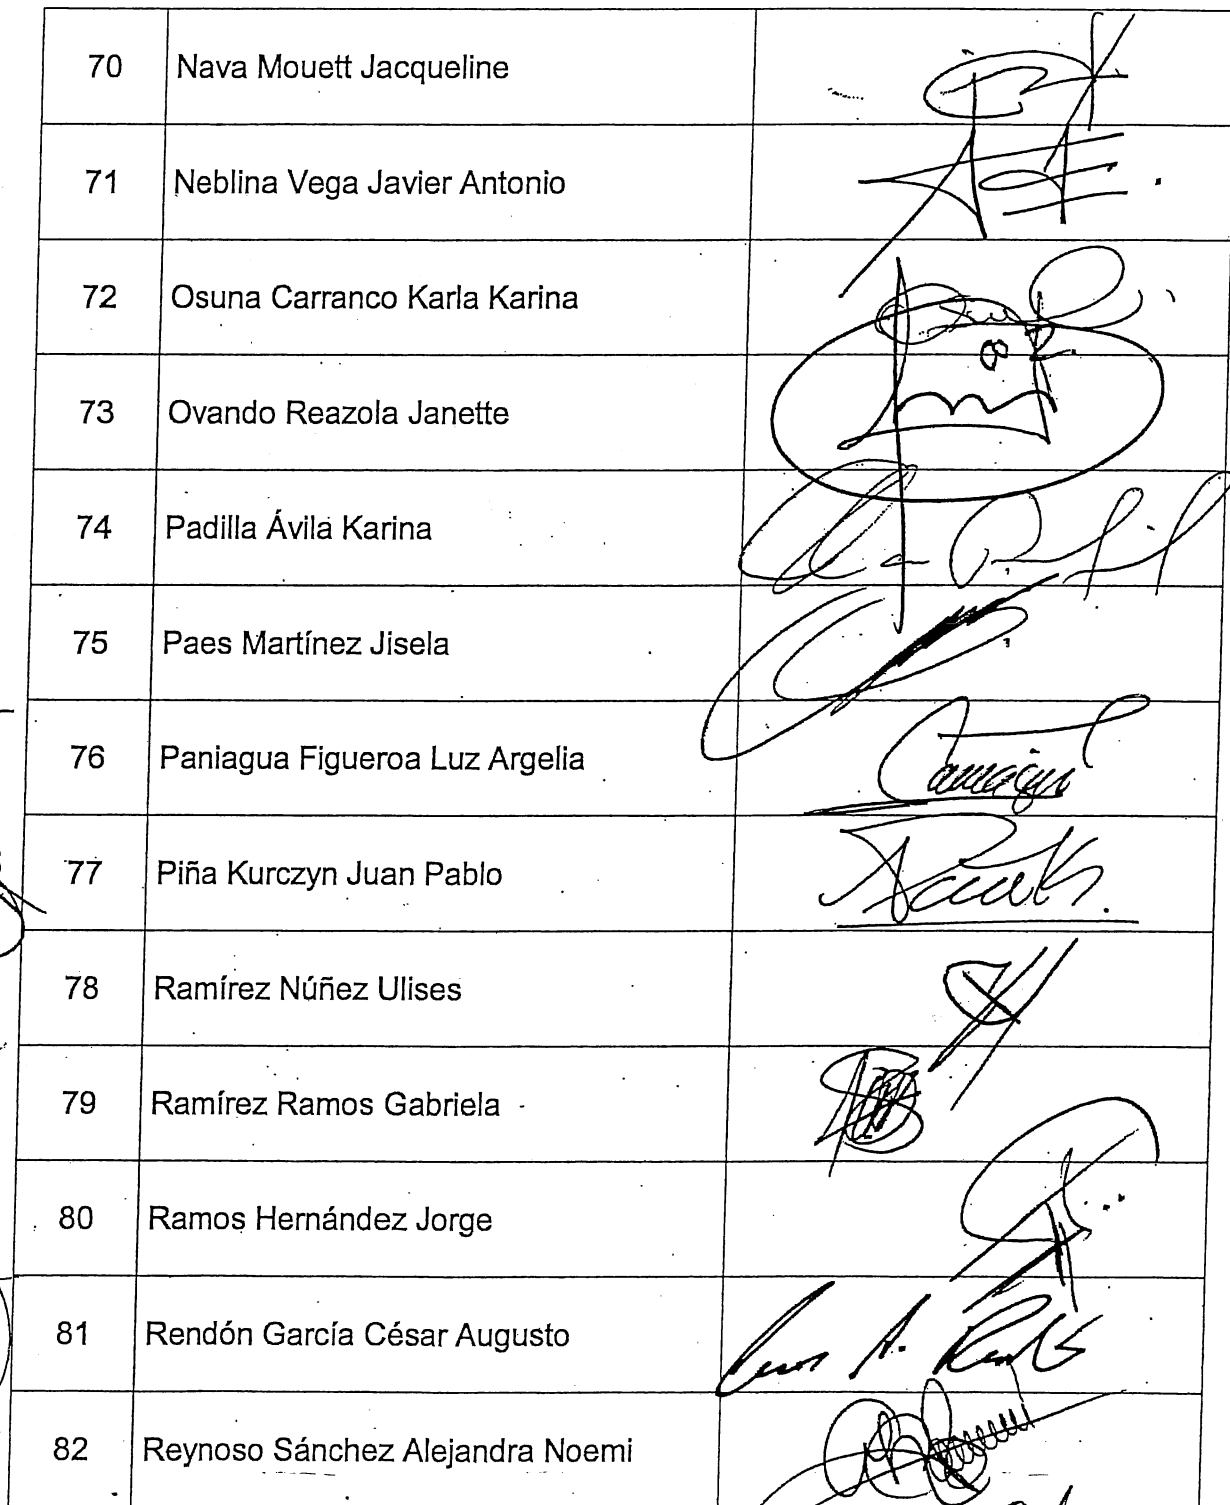 70 Nava Mouett Jacqueline
71 Neblina Vega Javier Antonio
72 Osuna Carranco Karla Karina
73 Ovando Reazola Janette
74 Padilla Ávila Karina
75 Paes Martínez Jisela
76 Paniagua Figueroa Luz Argelia
77 Piña Kurczyn Juan Pablo
78 Ramírez Núñez Ulises
79 Ramírez Ramos Gabriela
80 Ramos Hernández Jorge
81 Rendón García César Augusto
82 Reynoso Sánchez Alejandra Noemi